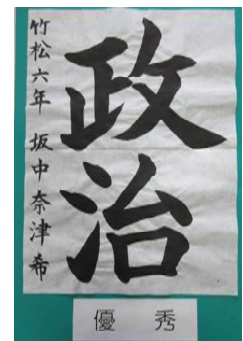 政治
竹松六年 坂中奈津希
優 秀